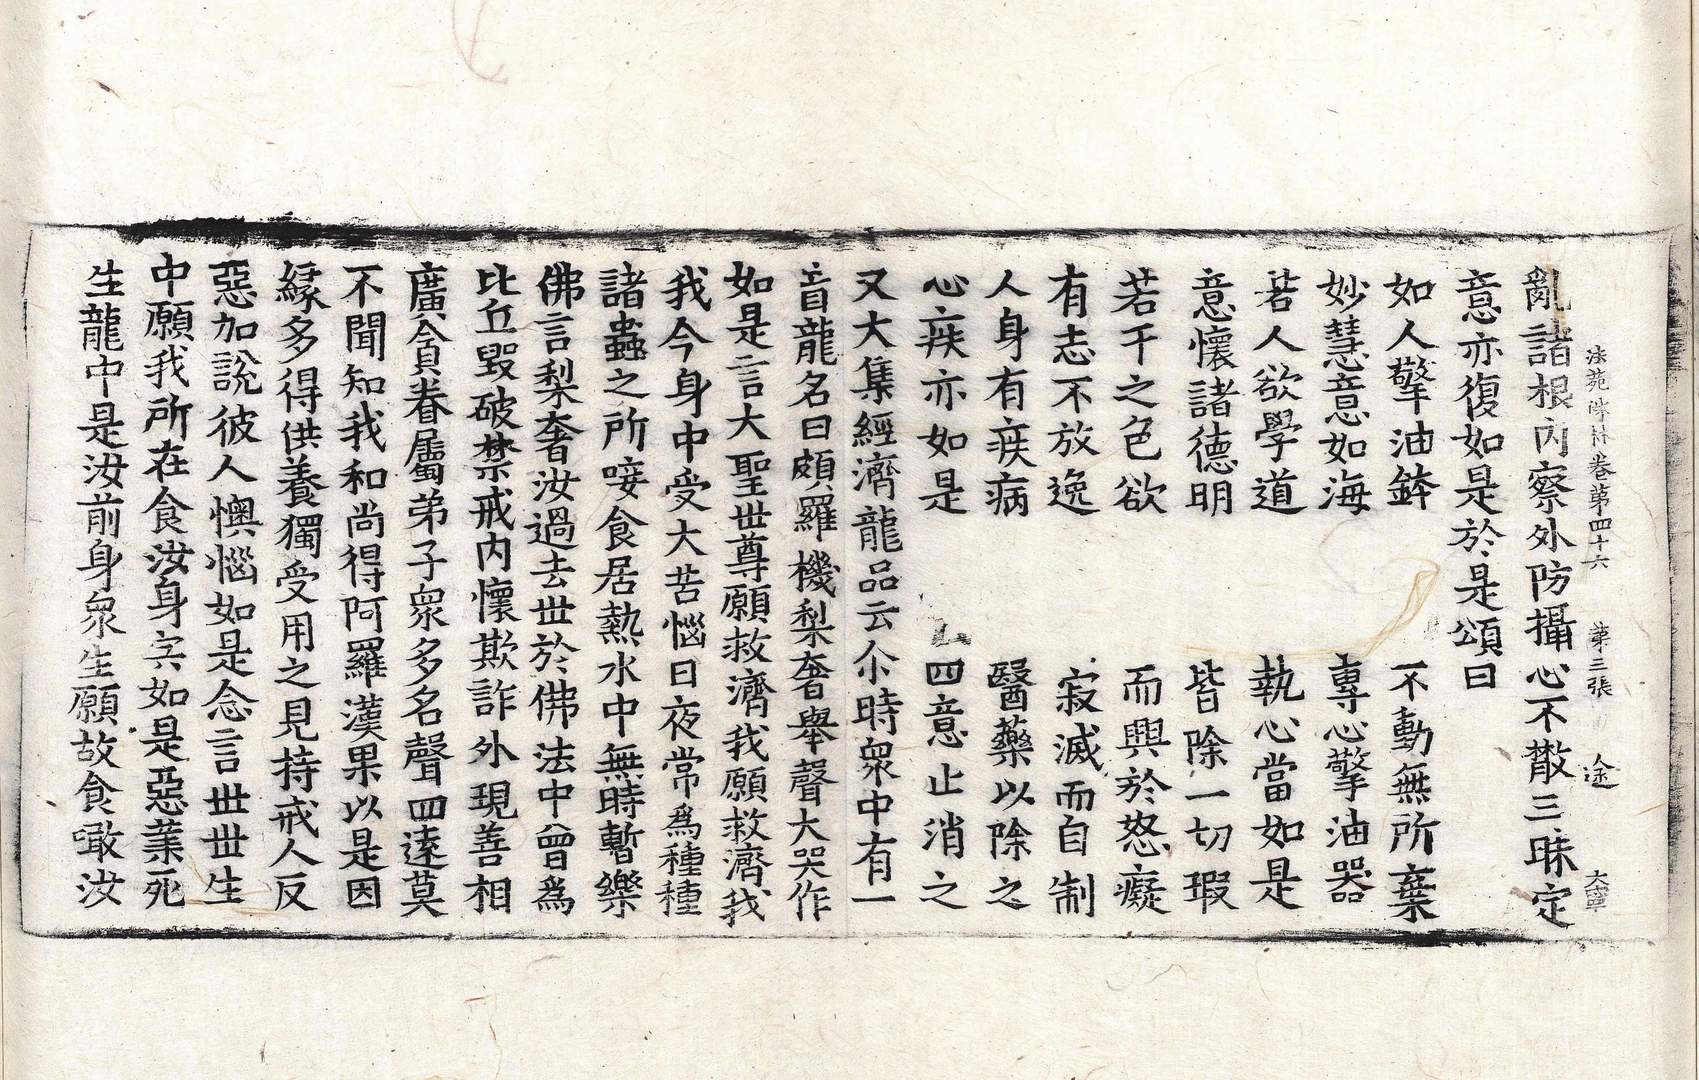 法苑珠林卷第四十六 第三張 途 大寧
亂諸根內察外防攝心不散三昧定
意亦復如是於是頌曰
如人擎油鉢 不動無所棄
妙慧意如海 專心擎油器
若人欲學道 執心當如是
意懷諸德明 皆除一切瑕
若干之色欲 而興於怒癡
有志不放逸 寂滅而自制
人身有疾病 醫藥以除之
心疾亦如是 四意止消之
又大集經濟龍品云尒時衆中有一
盲龍名曰頗羅機梨奢舉聲大哭作
如是言大聖世尊願救濟我願救濟我
我今身中受大苦惱日夜常爲種種
諸蟲之所唼食居熱水中無時暫樂
佛言梨奢汝過去世於佛法中曾爲
比丘毀破禁戒內懷欺詐外現善相
廣貪眷屬弟子衆多名聲四遠莫
不聞知我和尚得阿羅漢果以是因
緣多得供養獨受用之見持戒人反
惡加說彼人懊惱如是念言世世生
中願我所在食汝身宍如是惡業死
生龍中是汝前身衆生願故食噉汝